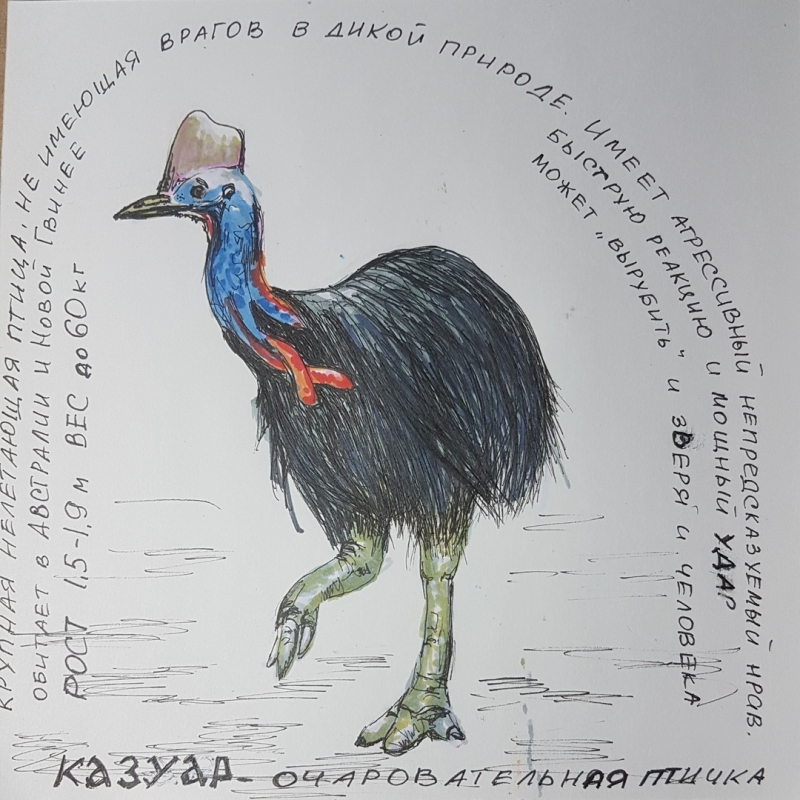 КРУПНАЯ НЕЛЕТАЮЩАЯ ПТИЦА, НЕ ИМЕЮЩАЯ ВРАГОВ В ДИКОЙ ПРИРОДЕ. ИМЕЕТ АГРЕССИВНЫЙ НЕПРЕДСКАЗУЕМЫЙ НРАВ.
ОБИТАЕТ В АВСТРАЛИИ И НОВОЙ ГВИНЕЕ
РОСТ 1,5-1,9 м ВЕС до 60 кг
БЫСТРУЮ РЕАКЦИЮ И МОЩНЫЙ УДАР
МОЖЕТ „ВЫРУБИТЬ" И ЗВЕРЯ И ЧЕЛОВЕКА
КАЗУАР - ОЧАРОВАТЕЛЬНАЯ ПТИЧКА